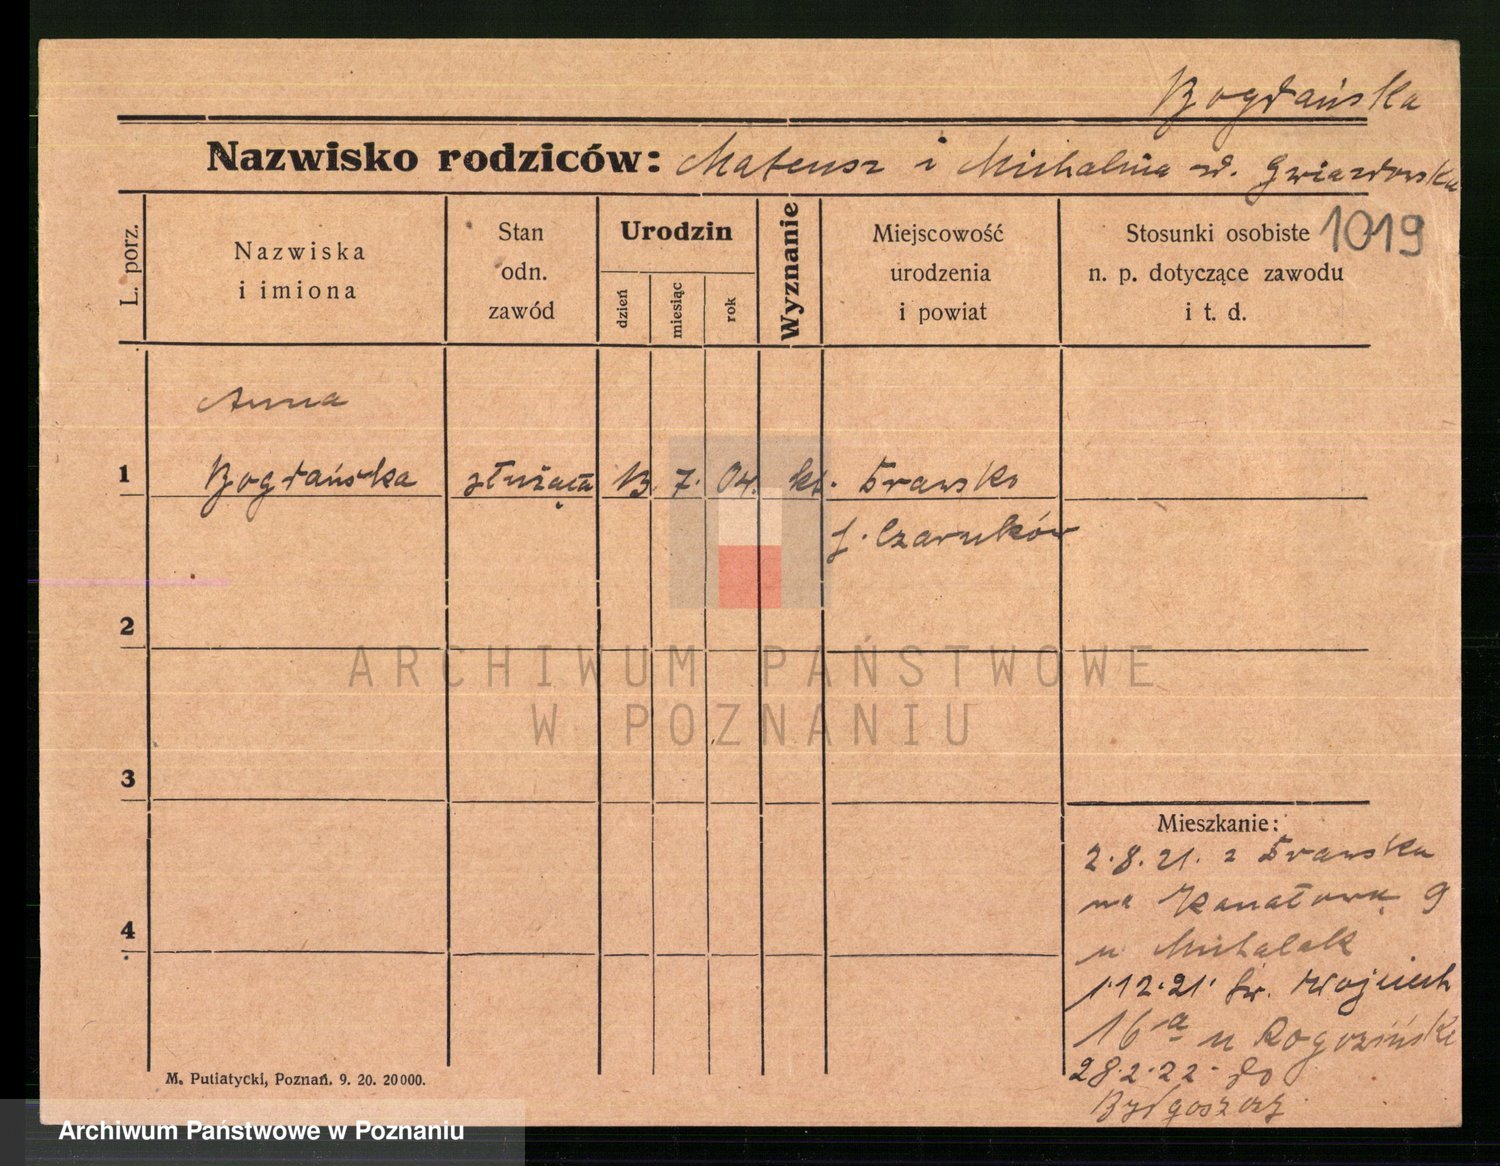 Bogdańska
Nazwisko rodziców: Mateusz i Michalina zd. Gwiazdowska
1019
L. porz.
Nazwiska
i imiona
Stan
odn.
zawód
Urodzin
dzień
miesiąc
rok
Wyznanie
Miejscowość
urodzenia
i powiat
Stosunki osobiste
n. p. dotyczące zawodu
i t. d.
Anna
1 Bogdańska służąca 13. 7. 04. kt. Drawsko
Czarnków
2
3
4
Mieszkanie:
2.8.21. z Drawska
na Kanałową 9
u Michalak
1.12.21. Św. Wojciech
16a u Rogoziński
28.2.22. do
Bydgoszczy
M. Putiatycki, Poznań. 9. 20. 20000.
ARCHIWUM PAŃSTWOWE
W POZNANIU
Archiwum Państwowe w Poznaniu